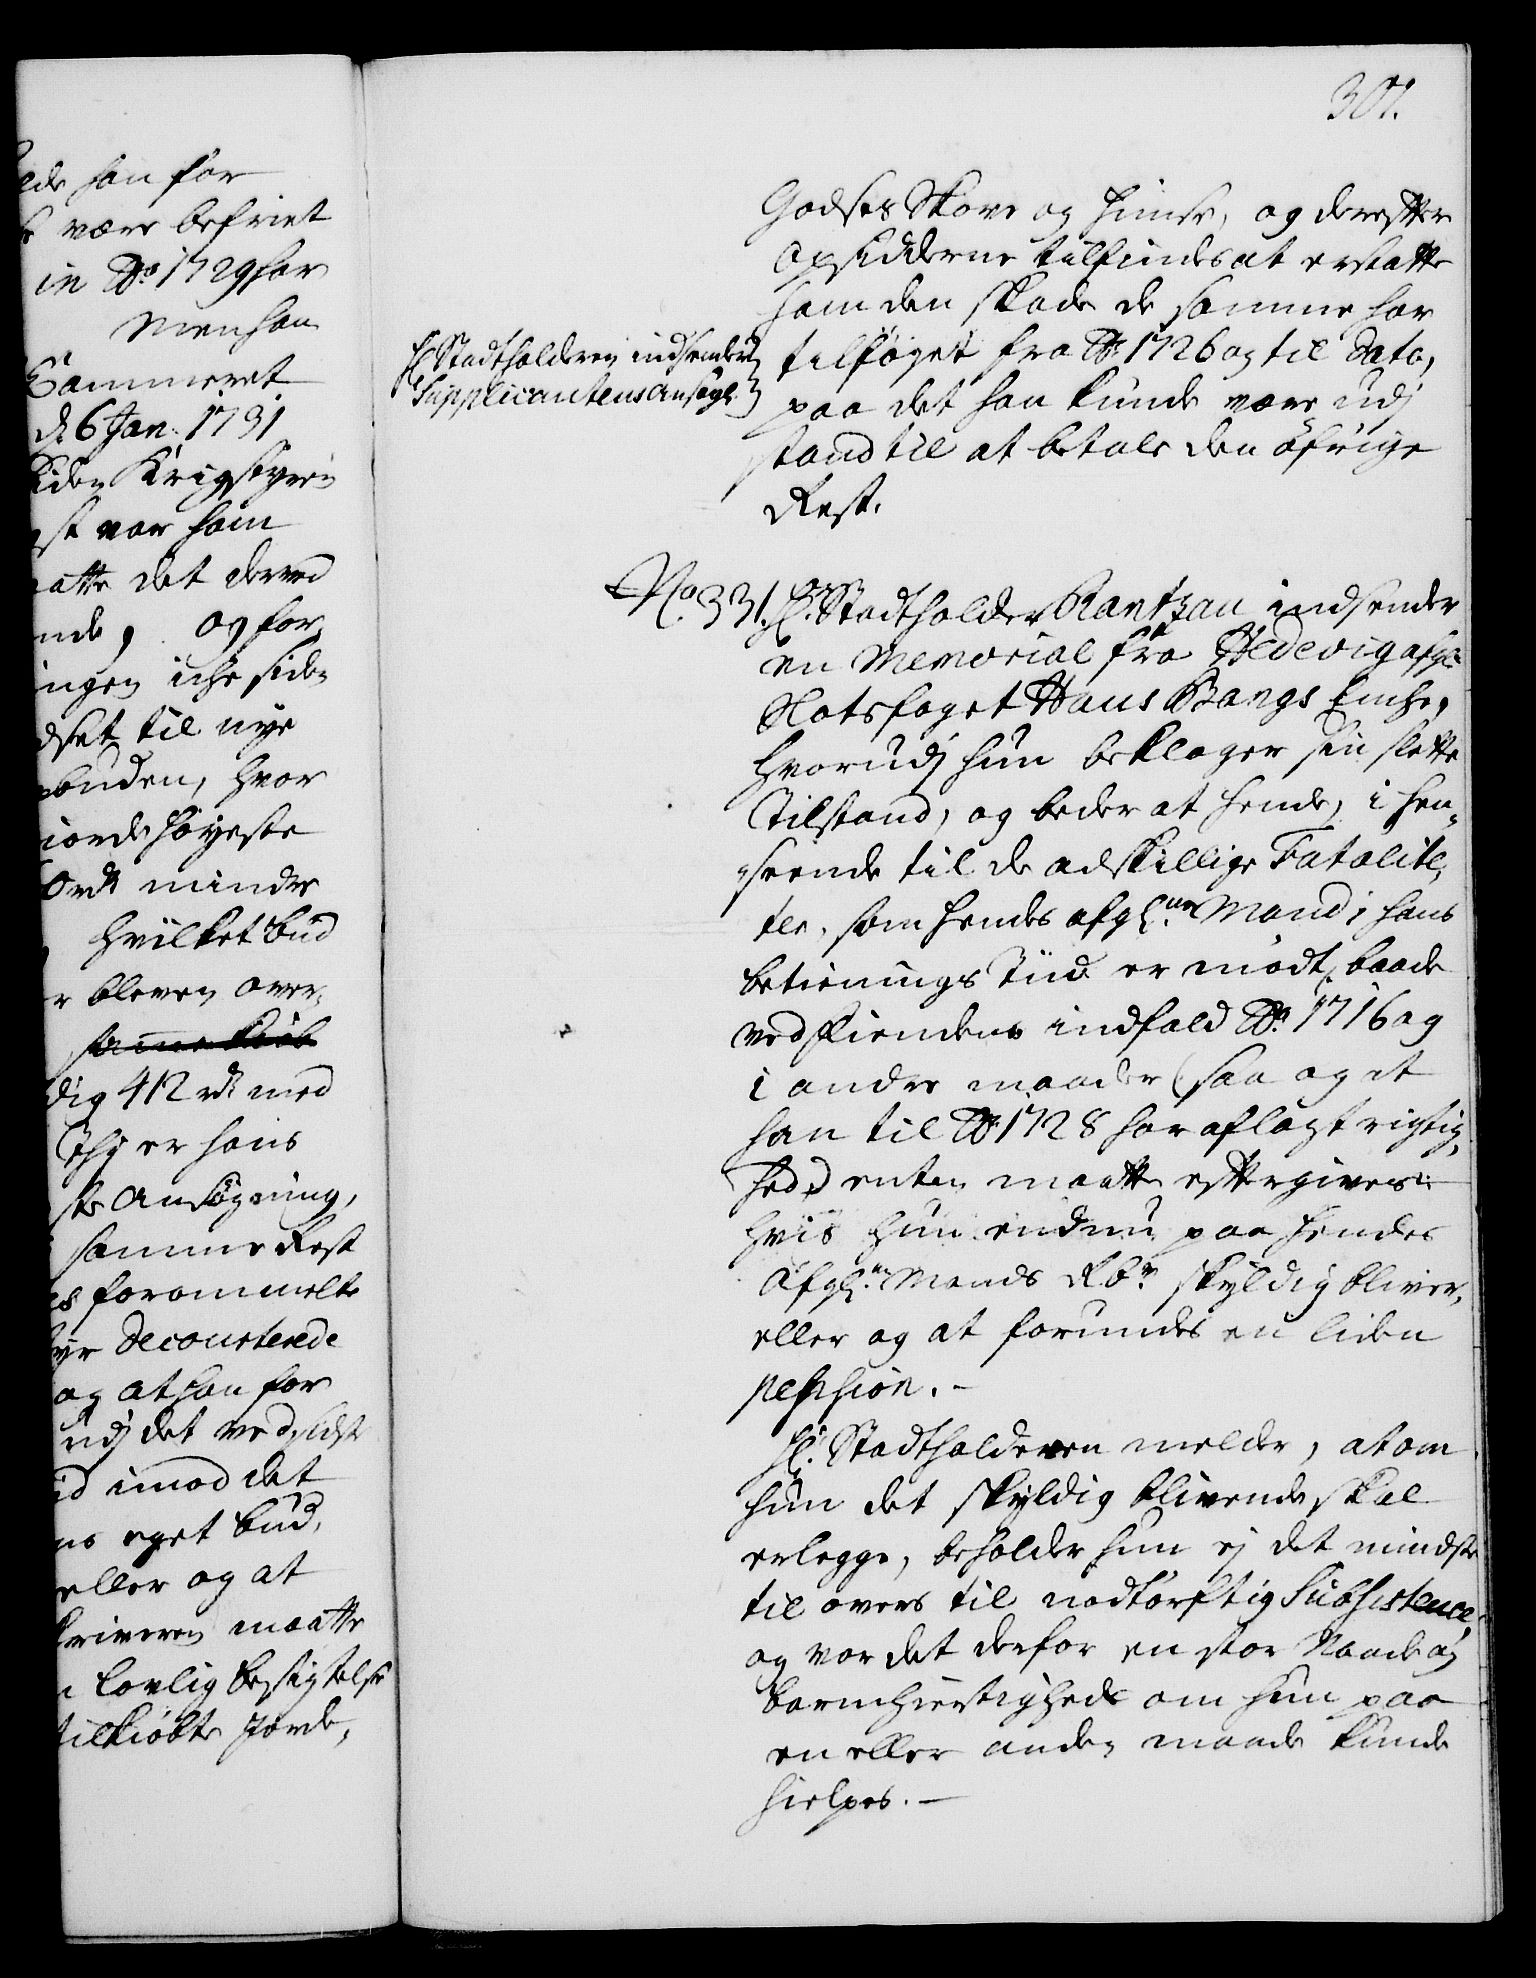 301.
ede han for
være befriet
in Ao. 1729 har
Men han
Cammeret
d. 6 Jan. 1731
siden Krigstyren
var ham
maatte det derved
nde, og for
ingen icke siden
dset til nye
buden, hvor
giorde høyeste
Ordr mindre
hvilket bud
r bleven over,
samme Kiøb
dig 412 rdr med
Thj er hans
ste Ansøgning,
samme Rest
es forommelte
yr decourterede
og at han for
udj det ved sidste
id imod det
ns eget bud,
eller og at
skriveren maatte
lovlig besigtelse
tilkiøbte Jorde,
Godsets Skove og Huuse, og derefter
Opsidderne tilfindes at erstatte
ham den skade de samme har
tilføyet fra Ao. 1726 og til Dato,
paa det han kunde være udj
stand til at betale den øfrige
Rest.
Hr. Stadtholderen indsender
Supplicantens ansøgn.
No. 331. Hr. Stadtholder Rantzau indsender
en Memorial fra Hedevig afgl.
Slotsfoget Hans Bangs Encke,
hvorudj hun beklager sin slette
Tilstand, og beder at hende, i hen-
seende til de adskillige Fatalite-
ter, som hendes afgl. Mand i hans
betienings Tiid er mødt, baade
ved Fiendens indfald Ao. 1716 og
i andre maader (saa og at
han til Ao. 1728 har aflagt rigtig-
hed) enten maatte eftergives
hvis hun endnu paa hendes
Afgl. Mands Regnr. skyldig bliver,
eller og at forundes en liden
pension. -
Hr. Stadtholderen melder, at om
hun det skyldig blivende skal
erlegge, beholder hun ej det mindste
til overs til nødtørftig Subsistence,
og var det derfor en stor Naade og
barmhiertighed om hun paa
en eller anden maade kunde
hielpes. -